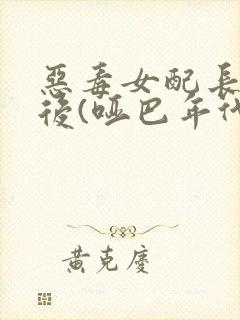 惡毒女配長
後(啞巴年代
黃克慶